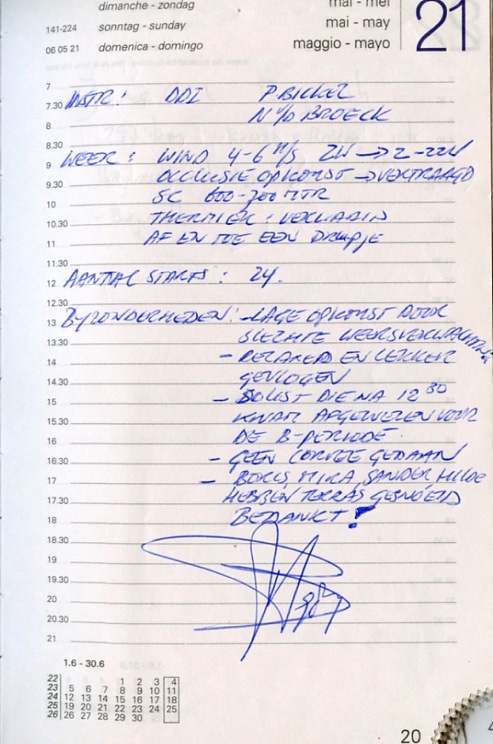 dimanche - zondag
mai - mei
141-224 sonntag - sunday
mai - may
21
06 05 21 domenica - domingo
maggio - mayo
7
7.30 INSTR: DDI P BICKEL
8 N V/D BROECK
8.30
9 WEER: WIND 4-6 M/S ZW → Z-ZZW
9.30 OCCLUSIE OPKOMST → VERTRAAGD
10 SC 600-700 MTR
10.30 THERMIEK:
11 AF EN TOE EEN DRUPJE
11.30
12 AANTAL STARTS: 24.
12.30
13 BIJZONDERHEDEN: - LAGE OPKOMST DOOR
13.30 SLECHTE WEERSVERWACHTING
14 - RELAXED EN LEKKER
14.30 GEVLOGEN
15 - DIE NA 12 30
15.30 KWAM AFGEWEZEN VOOR
16 DE B-PERIODE.
16.30 - GEEN CORVEE GEDAAN
17 - BORIS, MIRA, SANDER, HILDE
17.30 HEBBEN TERRAS GESNOEID
18 BEDANKT!
18.30
19
19.30
20
20.30
21
1.6 - 30.6
22 1 2 3 4
23 5 6 7 8 9 10 11
24 12 13 14 15 16 17 18
25 19 20 21 22 23 24 25
26 26 27 28 29 30
20